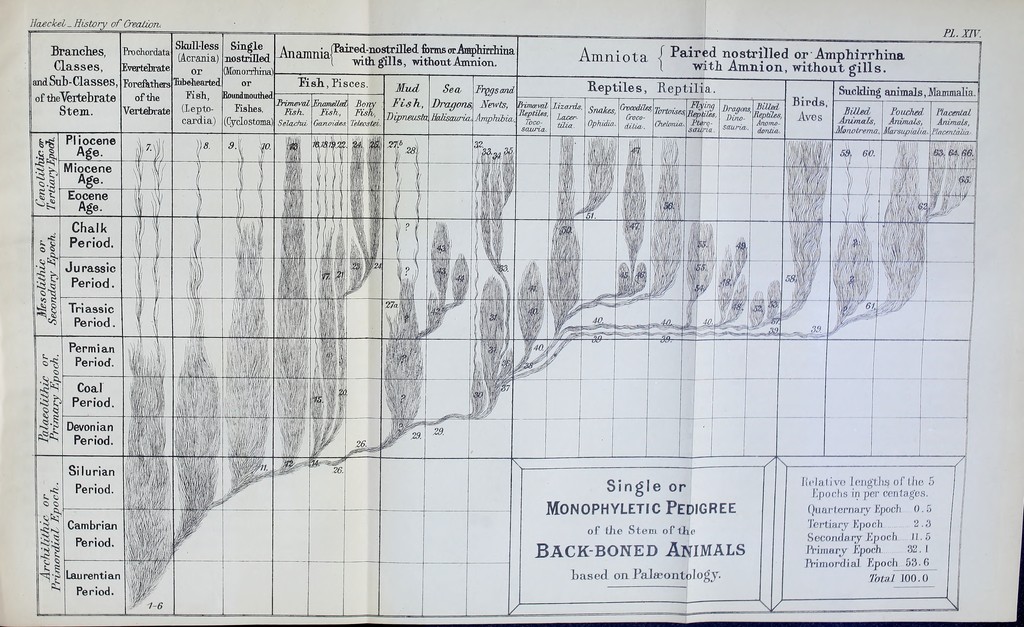 Haeckel_ History of Creation.
PL. XIV.
Branches,
Classes,
and Sub-Classes,
of the Vertebrate
Stem.
Prochordata
Evertebrate
Forefathers
of the
Vertebrate
Skull-less
(Acrania)
or
Tubehearted
Fish,
(Lepto-
cardia)
Single
nostrilled
(Monorrhina)
or
Roundmouthed
Fishes.
(Cyclostoma)
Anamnia { Paired-nostrilled forms or Amphirrhina
with gills, without Amnion.
Fish, Pisces.
Primæval
Fish.
Selachii
Enamelled
Fish,
Ganoides
Bony
Fish,
Teleostei
Mud
Fish,
Dipneusta
Sea
Dragons,
Halisauria.
Frogs and
Newts,
Amphibia.
Amniota { Paired nostrilled or Amphirrhina
with Amnion, without gills.
Reptiles, Reptilia.
Primæval
Reptiles,
Toco-
sauria.
Lizards,
Lacer-
tilia.
Snakes,
Ophidia.
Crocodiles,
Croco-
dilia.
Tortoises,
Chelonia.
Flying
Reptiles,
Ptero-
sauria.
Dragons,
Dino-
sauria.
Billed
Reptiles,
Anomo-
dontia.
Birds,
Aves
Suckling animals, Mammalia.
Billed
Animals,
Monotrema.
Pouched
Animals,
Marsupialia.
Placental
Animals,
Placentalia.
Cenolithic or
Tertiary Epoch.
Pliocene
Age.
7. 8. 9. 10. 24. 25. 27.b 28. 32. 33. 34. 35. 47. 59. 60. 63. 64. 66.
Miocene
Age.
65.
Eocene
Age.
51. 56. 62.
Mesolithic or
Secondary Epoch.
Chalk
Period.
? 43. 50. 47. 55. 49.
Jurassic
Period.
17. 21. 23. 24. ? 43. 44. 33. 41. 45. 46. 55. 54. 48. 53. 58.
Triassic
Period.
27a. 42. 31. 40. 40. 40. 40. 48. 52. 57. 61.
39. 39. 39. 39.
Palæolithic or
Primary Epoch.
Permian
Period.
? 37. 36. 38. 40.
Coal
Period.
15. 20. ? 30. 37.
Devonian
Period.
26. ? 29. 29.
Archilithic or
Primordial Epoch.
Silurian
Period.
11. 12. 14. 26.
Cambrian
Period.
Laurentian
Period.
1-6
Single or
MONOPHYLETIC PEDIGREE
of the Stem of the
BACK-BONED ANIMALS
based on Palæontology.
Relative lengths of the 5
Epochs in per centages.
Quarternary Epoch 0.5
Tertiary Epoch 2.3
Secondary Epoch 11.5
Primary Epoch 32.1
Primordial Epoch 53.6
Total 100.0